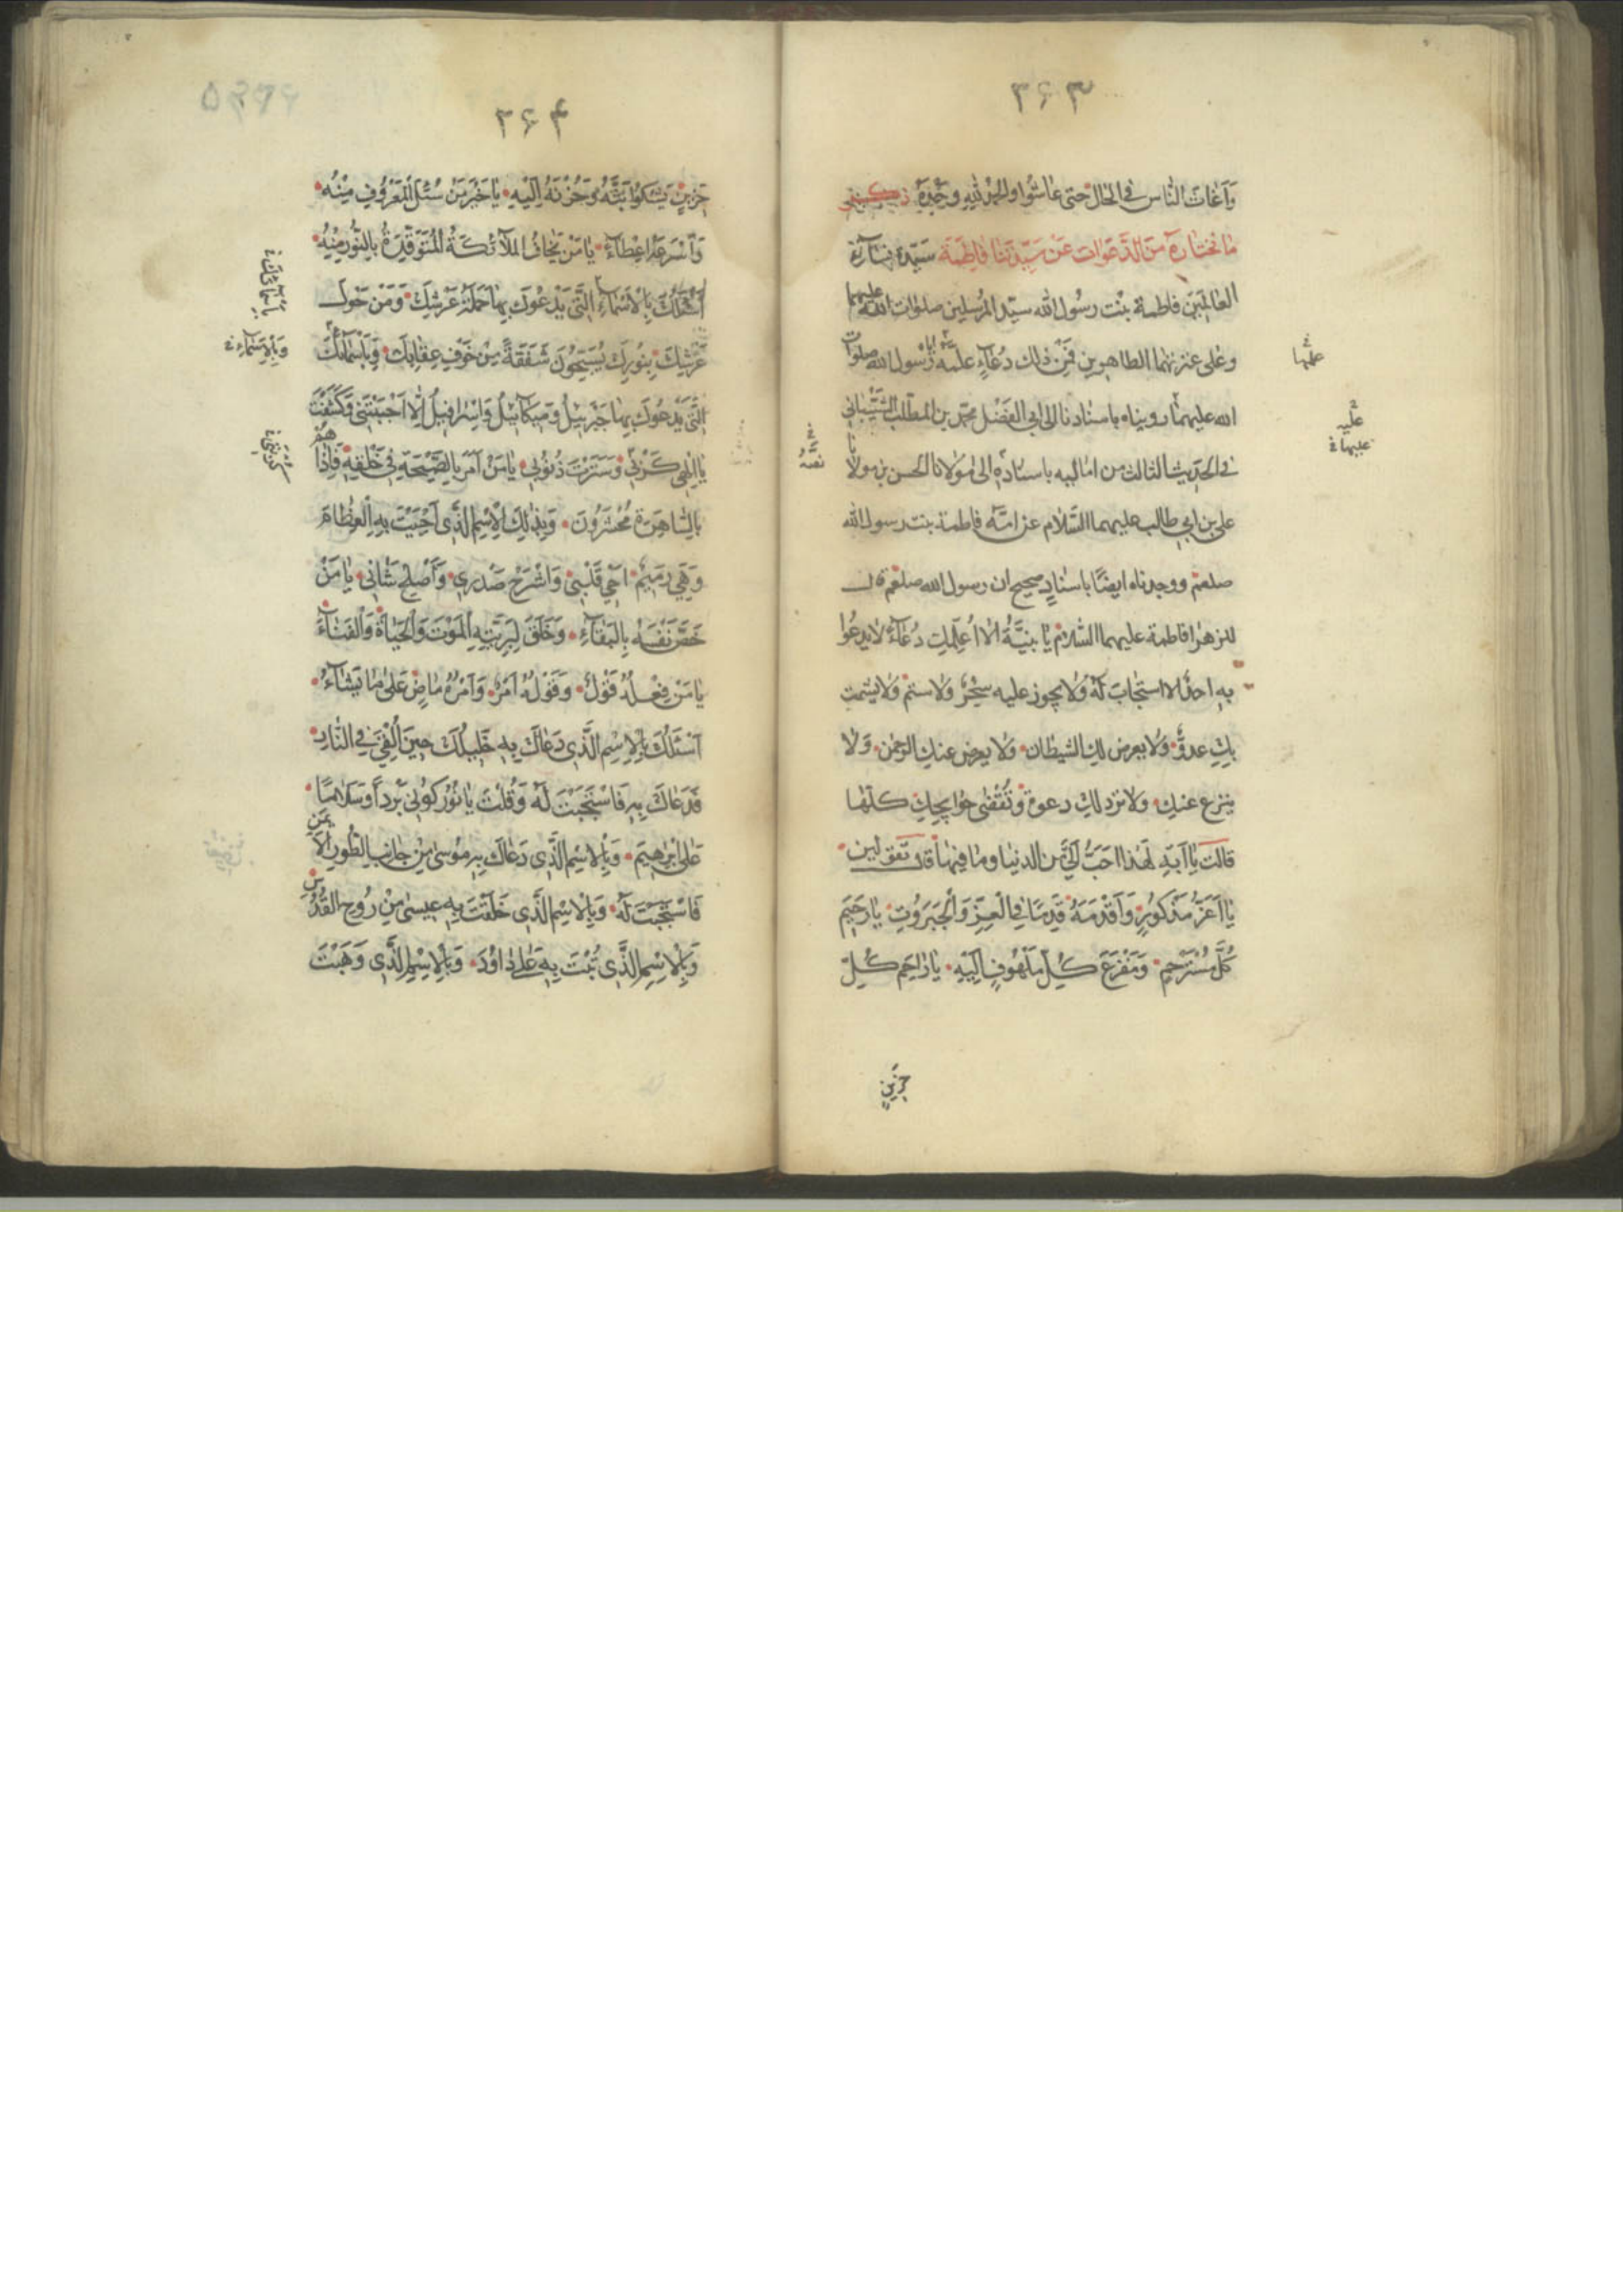 ٣۶٣
وَاَغاثَ النّاس فى الحال حتى عاشُوا والحمْد للهِ وحْدَهُ ذكر
ما نختارهُ منَ الدَّعَوات عَنْ سَيِّدَتنا فاطِمَة سَيّدة نسآء
العالمَينَ فاطمة بنْت رسُول الله سيّد المرُسلين صلوات الله عليهما
وعلى عترتهما الطاهرين فَمِنْ ذلك دُعآءٍ علّمهٗ ايّاها رسُول الله صلوات
الله عليهما رويناه باسنادنا الى ابى الفضْل محمّد بن المطّلب الشّيْبانى
فى الحديث الثالث من اماليه باسناده الى مَولانا الحسن بن مولانا
على بن ابي طالب عليهما السَّلام عن امّه فاطمة بنت رسول الله
صلعم ووجدناه ايضًا باسنادٍ صحيح ان رسول الله صلعم قال
للزهرا فاطمة عليهما السّلام يا بنيَّةُ الا اُعَلّمكِ دُعآءً لا يدعُوا
بهِ احدٌ الا استجابَ لَهٗ ولا يجوز عليه سِحْرٌ ولا سمٌّ ولا يشمت
بكِ عدوٌّ ولا يعرض لكِ الشيطان ولا يعرض عنكِ الرحمن ولا
ينزع عنكِ ولا تردّ لكِ دعوة وتُقْضى حوايجكِ كلّها
قالَتْ يا اَبَهِ لَهذا احَبُّ اِلَىَّ من الدنيا وما فيها قال تَقولين
يا اَعَزَّ مَذْكُورٍ وَاَقْدَمَهُ قِدَمًا فى العِزِّ وَالْجَبَرُوتِ يا رَحيمَ
كُلِّ مُسْتَرْحِمٍ وَمَفْزَعَ كُلِّ مَلْهُوفٍ اِلَيْهِ يا راحِمَ كُلِّ
حَزينٍ
عليها
عليه
عليهما
٣۶۴
حَزينٍ يَشْكُوا بَثَّهُ وَحُزْنَهُ اِلَيْهِ يا خَيْرَ مَنْ سُئلَ المَعْرُوفُ مِنْهُ
وَاَسْرَعَهُ اِعْطآءً يا مَنْ يَخافُ المَلآئكَةُ المُتَوَقِّدَةُ بِالنُّورِ مِنْهُ
اَسْئَلُكَ بِالْاَسْمآءِ الَّتى يَدْعُوكَ بِها حَمَلَةُ عَرْشِكَ وَمَنْ حَوْلَ
عَرْشِكَ بِنُورِكَ يُسَبِّحُونَ شَفَقَةً مِنْ خَوْفِ عِقابِكَ وَبِاَسْمآئكَ
الَّتى يَدْعُوكَ بِها جَبْرَئيلُ وَميكآئيلُ وَاِسْرافيلُ اِلّا اَجَبْتَنى وَكَشَفْتَ
يا اِلهى كُرْبَتى وَسَتَرْتَ ذُنُوبى يا مَنْ اَمَرَ بِالصَّيْحَةِ فى خَلْقِهِ فَاِذا هُمْ
بِالسّاهِرَةِ مُحْشَرُونَ وَبِذلِكَ الْاِسْمِ الَّذى اَحْيَيْتَ بِهِ الْعِظامَ
وَهِىَ رَميمٌ اَحْىِ قَلْبى وَاشْرَحْ صَدْرى وَاَصْلِحْ شَأنى يا مَنْ
خَصَّ نَفْسَهُ بِالْبَقآءِ وَخَلَقَ لِبَرِيَّتِهِ الْمَوْتَ وَالْحَيٰاةَ وَالْفَنآءَ
يا مَنْ فِعْلُهُ قَوْلٌ وَقَوْلُهُ اَمْرٌ وَاَمْرُهُ ماضٍ عَلى ما يَشآءُ
اَسْئَلُكَ بِالْاِسْمِ الَّذى دَعاكَ بِهِ خَليلُكَ حينَ اُلْقِىَ فى النّارِ
فَدَعاكَ بِهِ فَاسْتَجَبْتَ لَهُ وَقُلْتَ يا نارُ كُونى بَرْداً وَسَلاماً
عَلى اِبْرٰهيمَ وَبِالْاِسْمِ الَّذى دَعاكَ بِهِ مُوسى مِنْ جانِبِ الطُّورِ الْاَيْمَنِ
فَاسْتَجَبْتَ لَهُ وَبِالْاِسْمِ الَّذى خَلَقْتَ بِهِ عيسى مِنْ رُوحِ القُدُسِ
وَبِالْاِسْمِ الَّذى تُبْتَ بِهِ عَلى داوُدَ وَبِالْاِسْمِ الَّذى وَهَبْتَ
وَبِالْاَسْمآءِ